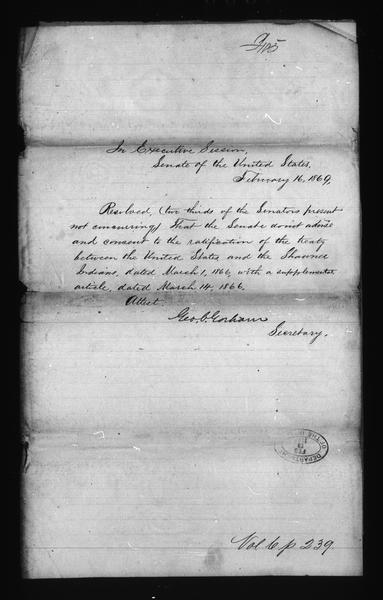 In Executive Session,
Senate of the United States,
February 16, 1869,
Resolved, (two thirds of the Senators present
not concurring) That the Senate do not advise
and consent to the ratification of the treaty
between the United States and the Shawnee
Indians, dated March 1, 1866, with a supplemental
article, dated March 14, 1866.
Attest
Geo. C. Gorham
Secretary.
DEPARTMENT
OF THE
FEB
Vol 6 p 239.